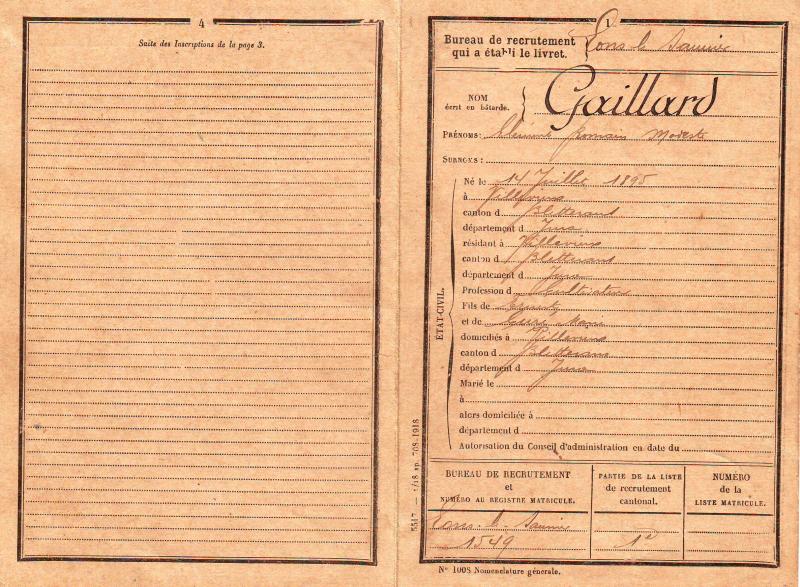 4
Suite des Inscriptions de la page 3.
1
Bureau de recrutement
qui a établi le livret.
Lons le Saunier
NOM
écrit en bâtarde.
Gaillard
PRÉNOMS: Clément Romain Modeste
SURNOMS:
ÉTAT-CIVIL.
Né le 14 Juillet 1895
à Villevieux
canton d Bletterans
département d Jura
résidant à Villevieux
canton d Bletterans
département d Jura
Profession d Cultivateur
Fils de
et de Marie
domiciliés à Villevieux
canton d Bletterans
département d Jura
Marié le
à
alors domiciliée à
département d
Autorisation du Conseil d'administration en date du
BUREAU DE RECRUTEMENT
et
NUMÉRO AU REGISTRE MATRICULE.
PARTIE DE LA LISTE
de recrutement
cantonal.
NUMÉRO
de la
LISTE MATRICULE.
Lons-le-Saunier
1549
1e
5517. — 1/18 sp. 708-1918
N° 1008 Nomenclature générale.